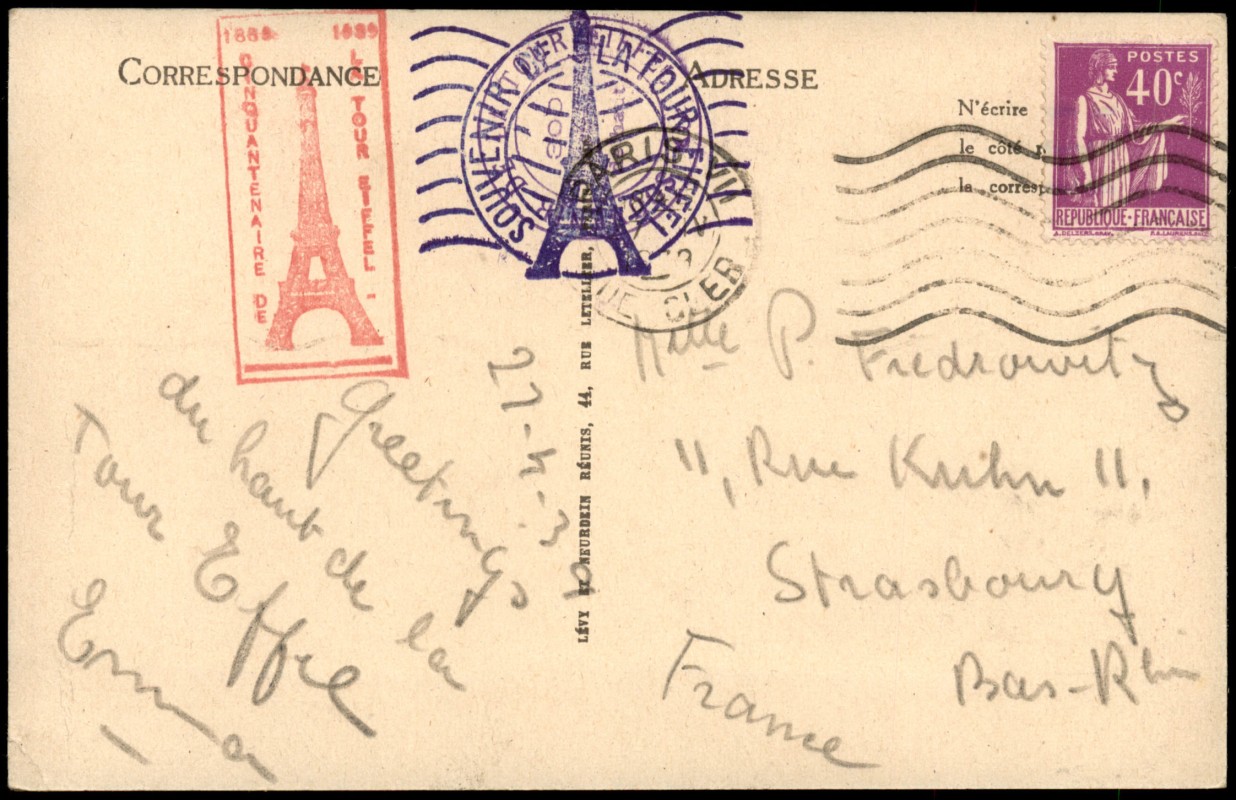 1889 1939
CINQUANTENAIRE DE
LA TOUR EIFFEL
CORRESPONDANCE
SOUVENIR DE LA TOUR EIFFEL
ADRESSE
PARIS VII
RUE CLER
N'écrire
le côté
la corresp
POSTES
40c
RÉPUBLIQUE-FRANÇAISE
27-4-39
Greetings
du haut de la
Tour Effel
Emma
LÉVY ET NEURDEIN RÉUNIS, 44, RUE LETELLIER,
Melle P. Fiedrowitz
11, Rue Kuhn 11,
Strasbourg
Bas-Rhin
France